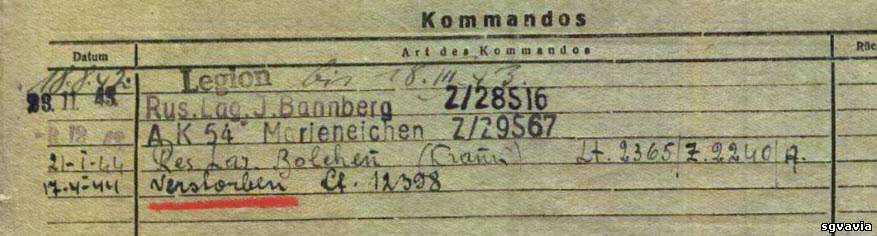 Kommandos
Datum Art des Kommandos Rüc
18.8.42. Legion bis 18.III.43.
29.11 43. Rus.Lag.J.Bannberg Z/28516
A K 54 Marieneichen Z/29567
21-I-44 Res Laz. Bolchen Lt. 2365/Z.2240/A.
17.4-44 Verstorben Lt. 12398
sgvavia